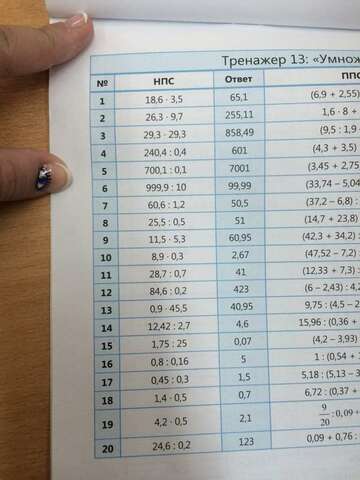 Тренажер 13: «Умнож
№ НПС Ответ ППС
1 18,6 · 3,5 65,1 (6,9 + 2,55)
2 26,3 · 9,7 255,11 1,6 · 8 +
3 29,3 · 29,3 858,49 (9,5 : 1,9
4 240,4 : 0,4 601 (4,3 + 3,5)
5 700,1 : 0,1 7001 (3,45 + 2,75
6 999,9 : 10 99,99 (33,74 – 5,04
7 60,6 : 1,2 50,5 (37,2 – 6,8) :
8 25,5 : 0,5 51 (14,7 + 23,8)
9 11,5 · 5,3 60,95 (42,3 + 34,2) :
10 8,9 · 0,3 2,67 (47,52 – 7,2) :
11 28,7 : 0,7 41 (12,33 + 7,3)
12 84,6 : 0,2 423 (6 – 2,43) : 4,2
13 0,9 · 45,5 40,95 9,75 : (4,5 – 2
14 12,42 : 2,7 4,6 15,96 : (0,36 +
15 1,75 : 25 0,07 (4,2 – 3,93)
16 0,8 : 0,16 5 1 : (0,54 +
17 0,45 : 0,3 1,5 5,18 : (5,13 – 3
18 1,4 · 0,5 0,7 6,72 : (0,37 +
19 4,2 · 0,5 2,1 9/20 : 0,09 +
20 24,6 : 0,2 123 0,09 + 0,76 :